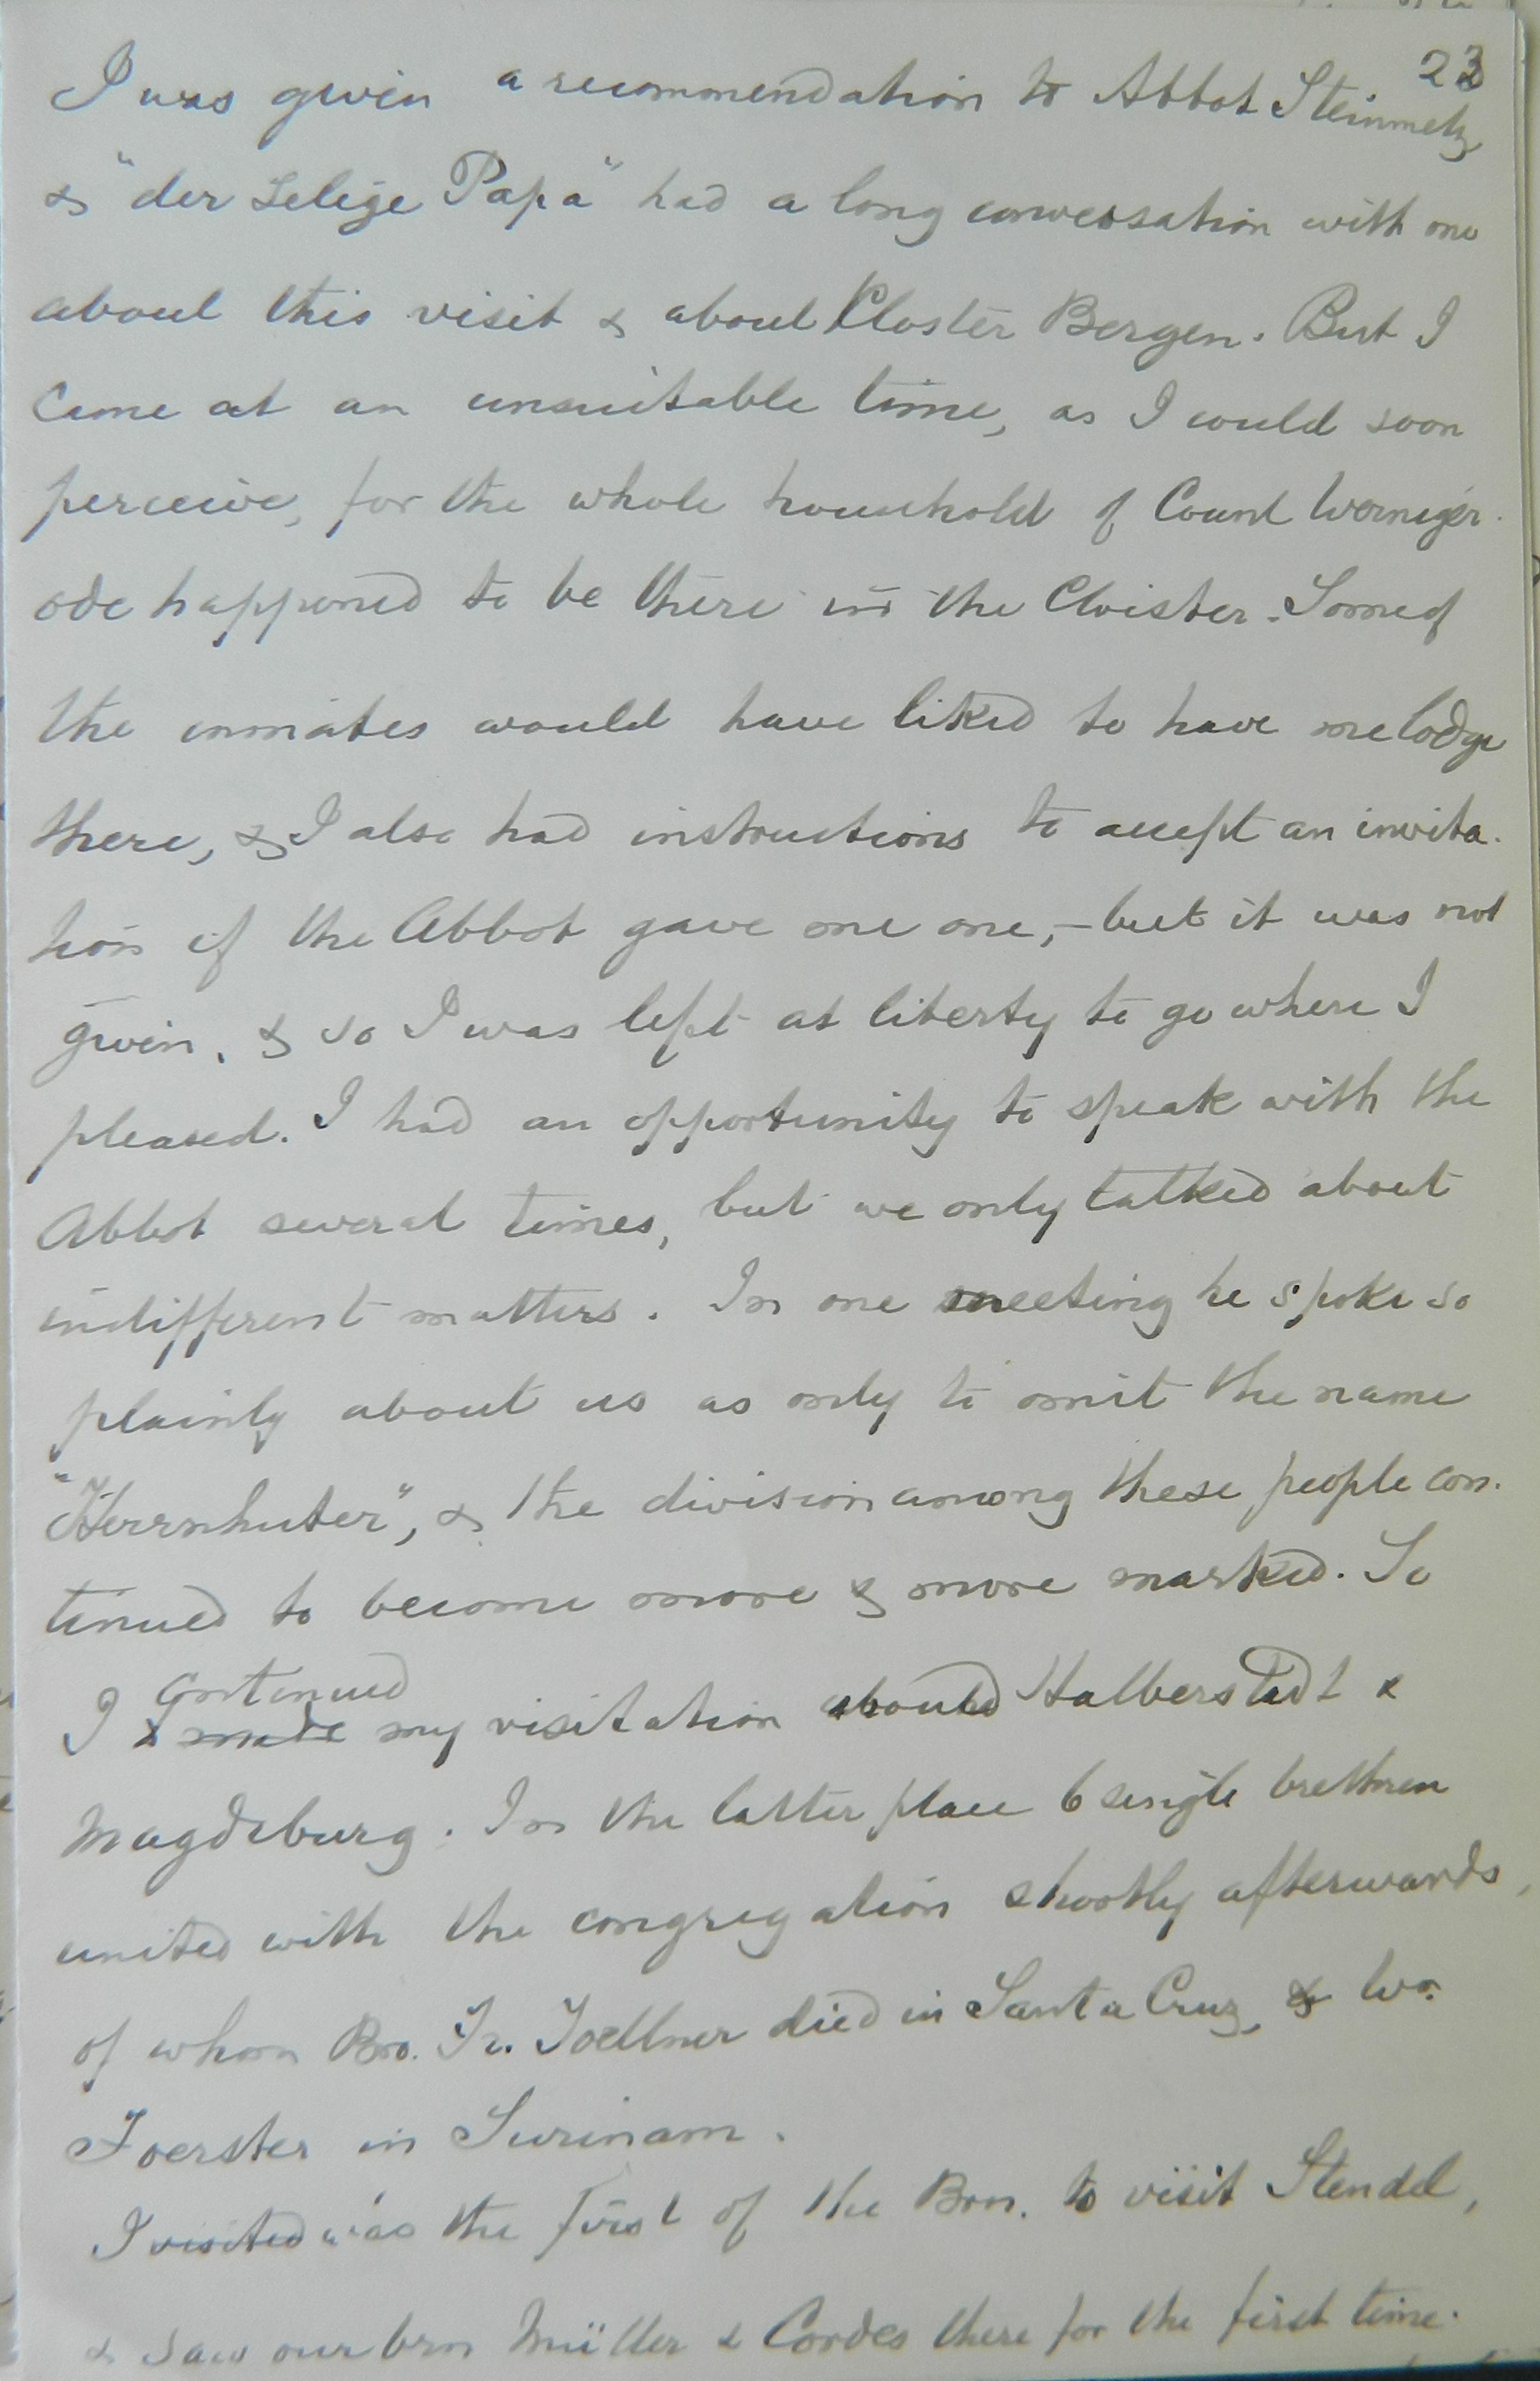 23
I was given a recommendation to Abbot Steinmetz
& "der Selige Papa" had a long conversation with me
about this visit & about Closter Bergen. But I
came at an unsuitable time, as I could soon
perceive, for the whole household of Count Werniger-
ode happened to be there in the Cloister. Some of
the inmates would have liked to have me lodge
there, & I also had instructions to accept an invita-
tion if the Abbot gave me one, - but it was not
given, & so I was left at liberty to go where I
pleased. I had an opportunity to speak with the
Abbot several times, but we only talked about
indifferent matters. In one meeting he spoke so
plainly about us as only to omit the name
"Herrnhuter", & the division among these people con-
tinued to become more & more marked. So
I continued
made my visitation around Halberstadt &
Magdeburg. In the latter place 6 single brethren
united with the congregation shortly afterwards,
of whom Bro. Fr. Toellner died in Santa Cruz, & Wm.
Foerster in Surinam.
I visited was the first of the Brn. to visit Stendel,
& saw our brn Müller & Cordes there for the first time.